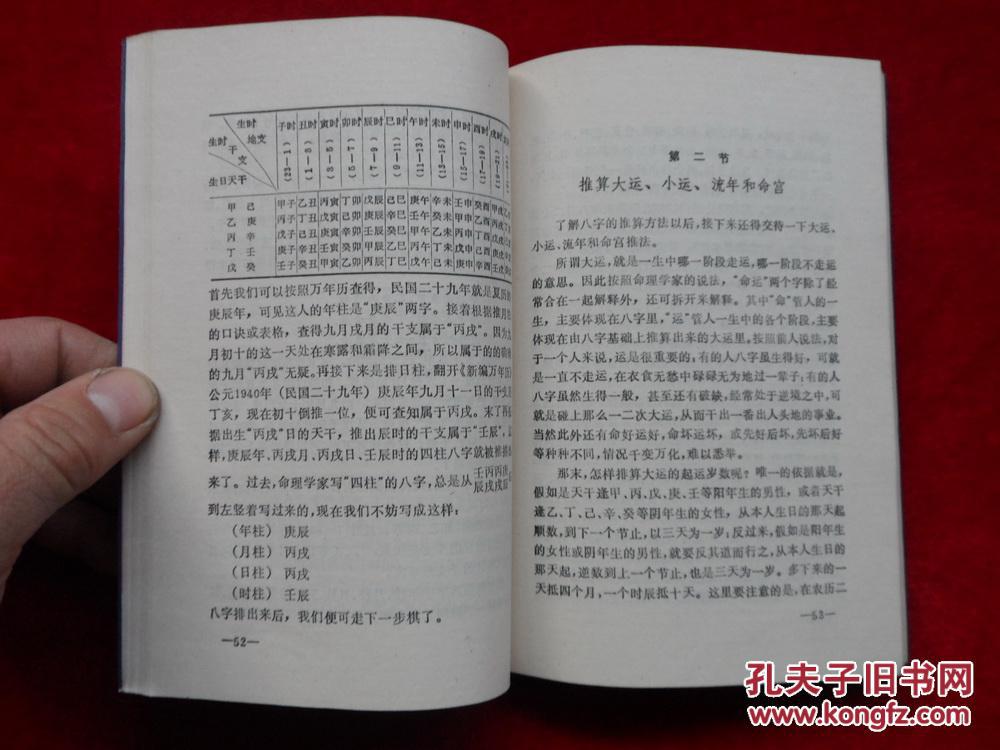 生时地支
生时干支
生日天干
子时 丑时 寅时 卯时 辰时 巳时 午时 未时 申时 酉时 戌时
(23—1) (1—3) (3—5) (5—7) (7—9) (9—11) (11—13) (13—15) (15—17) (17—19)
甲 己 甲子 乙丑 丙寅 丁卯 戊辰 己巳 庚午 辛未 壬申 癸酉 甲戌
乙 庚 丙子 丁丑 戊寅 己卯 庚辰 辛巳 壬午 癸未 甲申 乙酉 丙戌
丙 辛 戊子 己丑 庚寅 辛卯 壬辰 癸巳 甲午 乙未 丙申 丁酉 戊戌
丁 壬 庚子 辛丑 壬寅 癸卯 甲辰 乙巳 丙午 丁未 戊申 己酉 庚戌
戊 癸 壬子 癸丑 甲寅 乙卯 丙辰 丁巳 戊午 己未 庚申 辛酉 壬戌
首先我们可以按照万年历查得，民国二十九年就是夏历的
庚辰年，可见这人的年柱是“庚辰”两字。接着根据推月
的口诀或表格，查得九月戌月的干支属于“丙戌”。因为九
月初十的这一天处在寒露和霜降之间，所以属于的的确
的九月“丙戌”无疑。再接下来是排日柱，翻开《新编万年历》
公元1940年（民国二十九年）庚辰年九月十一日的干支
丁亥，现在初十倒推一位，便可查知属于丙戌。末了再
据出生“丙戌”日的天干，推出辰时的干支属于“壬辰”，这
样，庚辰年、丙戌月、丙戌日、壬辰时的四柱八字就被推
来了。过去，命理学家写“四柱”的八字，总是从壬丙丙庚辰戌戌辰
到左竖着写过来的，现在我们不妨写成这样：
（年柱） 庚辰
（月柱） 丙戌
（日柱） 丙戌
（时柱） 壬辰
八字排出来后，我们便可走下一步棋了。
—52—
第二节
推算大运、小运、流年和命宫
了解八字的推算方法以后，接下来还得交待一下大运、
小运、流年和命宫推法。
所谓大运，就是一生中哪一阶段走运，哪一阶段不走运
的意思。因此按照命理学家的说法，“命运”两个字除了经
常合在一起解释外，还可拆开来解释。其中“命”管人的一
生，主要体现在八字里，“运”管人一生中的各个阶段，主要
体现在由八字基础上推算出来的大运里。按照前人说法，对
于一个人来说，运是很重要的；有的人八字虽生得好，可就
是一直不走运，在衣食无愁中碌碌无为地过一辈子；有的人
八字虽然生得一般，甚至还有破缺，经常处于逆境之中，可
就是碰上那么一二次大运，从而干出一番出人头地的事业。
当然此外还有命好运好，命坏运坏，或先好后坏，先坏后好
等种种不同，情况千变万化，难以悉举。
那末，怎样排算大运的起运岁数呢？唯一的依据就是，
假如是天干逢甲、丙、戊、庚、壬等阳年生的男性，或着天干
逢乙、丁、己、辛、癸等阴年生的女性，从本人生日的那天起
顺数，到下一个节止，以三天为一岁；反过来，假如是阳年生
的女性或阴年生的男性，就要反其道而行之，从本人生日的
那天起，逆数到上一个节止，也是三天为一岁。多下来的一
天抵四个月，一个时辰抵十天。这里要注意的是，在农历二
—53—
孔夫子旧书网
www.kongfz.com